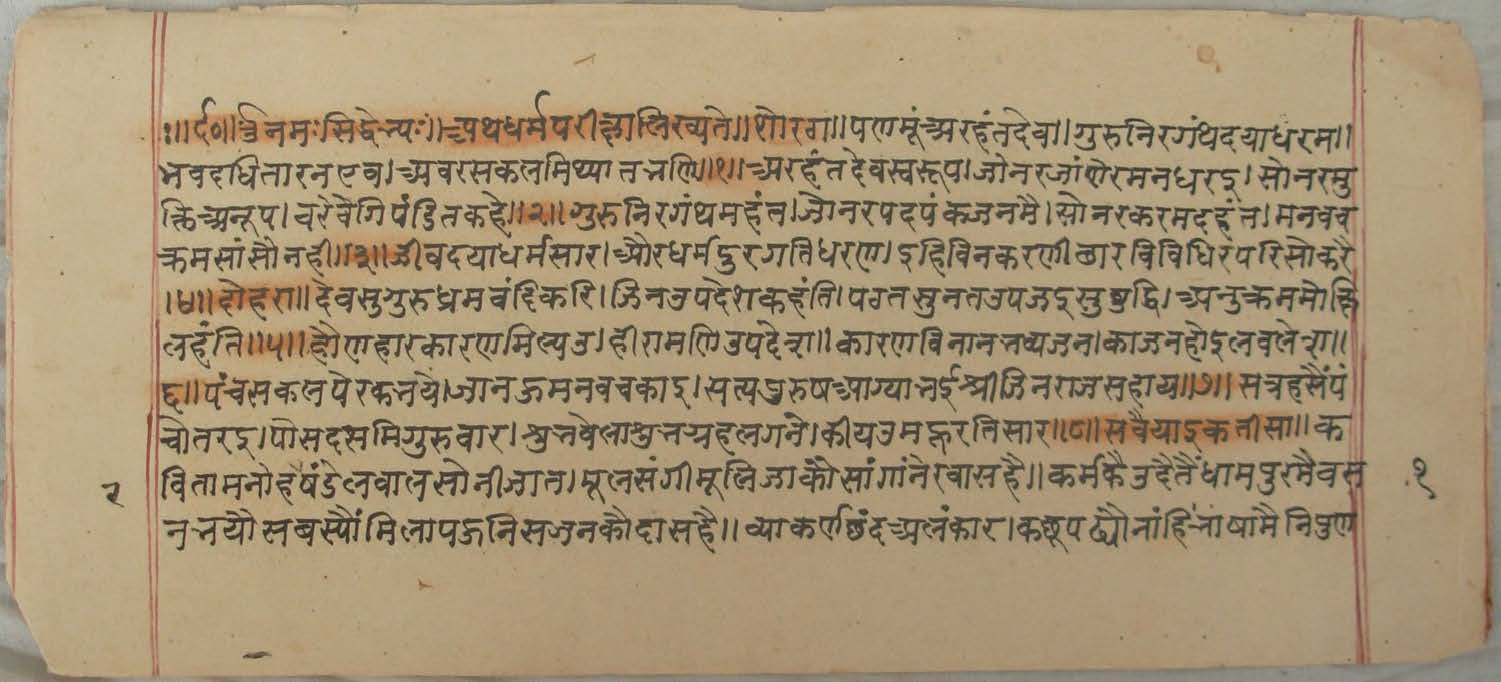 ः॥र्द०॥ॐ नमःसिद्धेभ्यः॥अथधर्मपरीक्षालिख्यते॥शोरगा॥पणमूंअरहंतदेवा॥गुरुनिरगंथदयाधरम॥
भवदधितारनएव।अवरसकलमिथ्यातभणि॥१॥अरहंतदेवस्वरूप।जोनरजांणेरमनधरइ।सोनरमु
क्तिअनूप।वरेवेगिपंडितकहे॥२॥गुरुनिरगंथमहंत।जोनरपदपंकजनमै।सोनरकरमदहंत।मनवच
क्रमसांसौनही॥३॥जीवदयाधर्मसार।औरधर्मदुरगतिधरण।इहिविनकरणीछारविविधिरंपरिसोकरै
।४॥दोहरा॥देवसुगुरुध्रमवंदिकरि।जिनउपदेशकहंति।पठतसुनतउपजइसुबुद्धि।अनुक्रममोक्षि
लहंति॥५॥हौणहारकारणमिल्यउ।हीरामणिउपदेश॥कारणविनानभव्यजन।काजनहोइलवलेश॥
६॥पंचसकलपेरकभये।ज्ञानऊमनवचकाइ।सत्यपुरुषआग्याभईश्रीजिनराजसहाय॥७॥सत्रहसैंपं
चोतरइ।पौसदसमिगुरुवार।शुभवेलाशुभग्रहलगने।कीयउमहूरतिसार॥८॥सवैयाइकतीसा॥क
वितामनोहरषंडेलवालसोनीजात।मूलसंगीमूलिजाकौसांगांनेरवासहै॥कर्मकैउदैतैंधामपुरमैवस
नभयौसबस्यौंमिलापऊनिसजनकौदासहै॥व्याकर्णछंदअलंकार।कछूपढ्यौनांहिंभाषामैनिपुण
२
१